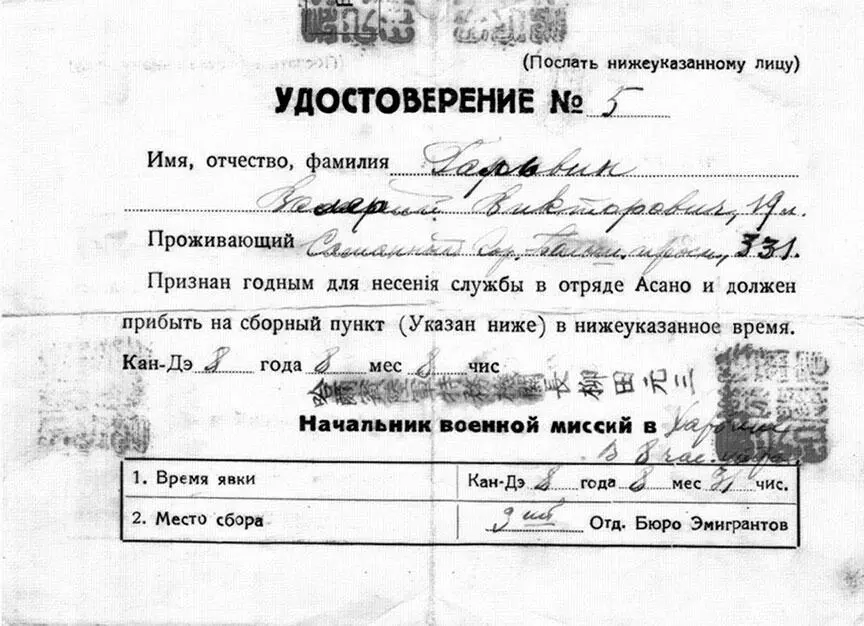 (Послать нижеуказанному лицу)
УДОСТОВЕРЕНИЕ № 5
Имя, отчество, фамилия
Викторович, 19 л.
Проживающий 331.
Признан годным для несенія службы в отряде Асано и должен
прибыть на сборный пункт (Указан ниже) в нижеуказанное время.
Кан-Дэ 8 года 8 мес 8 чис
哈爾濱陸軍特務機關長 柳田元三
Начальник военной миссий в Харбине
В 8 час. утра.
1. Время явки Кан-Дэ 8 года 8 мес 31 чис.
2. Место сбора Отд. Бюро Эмигрантов